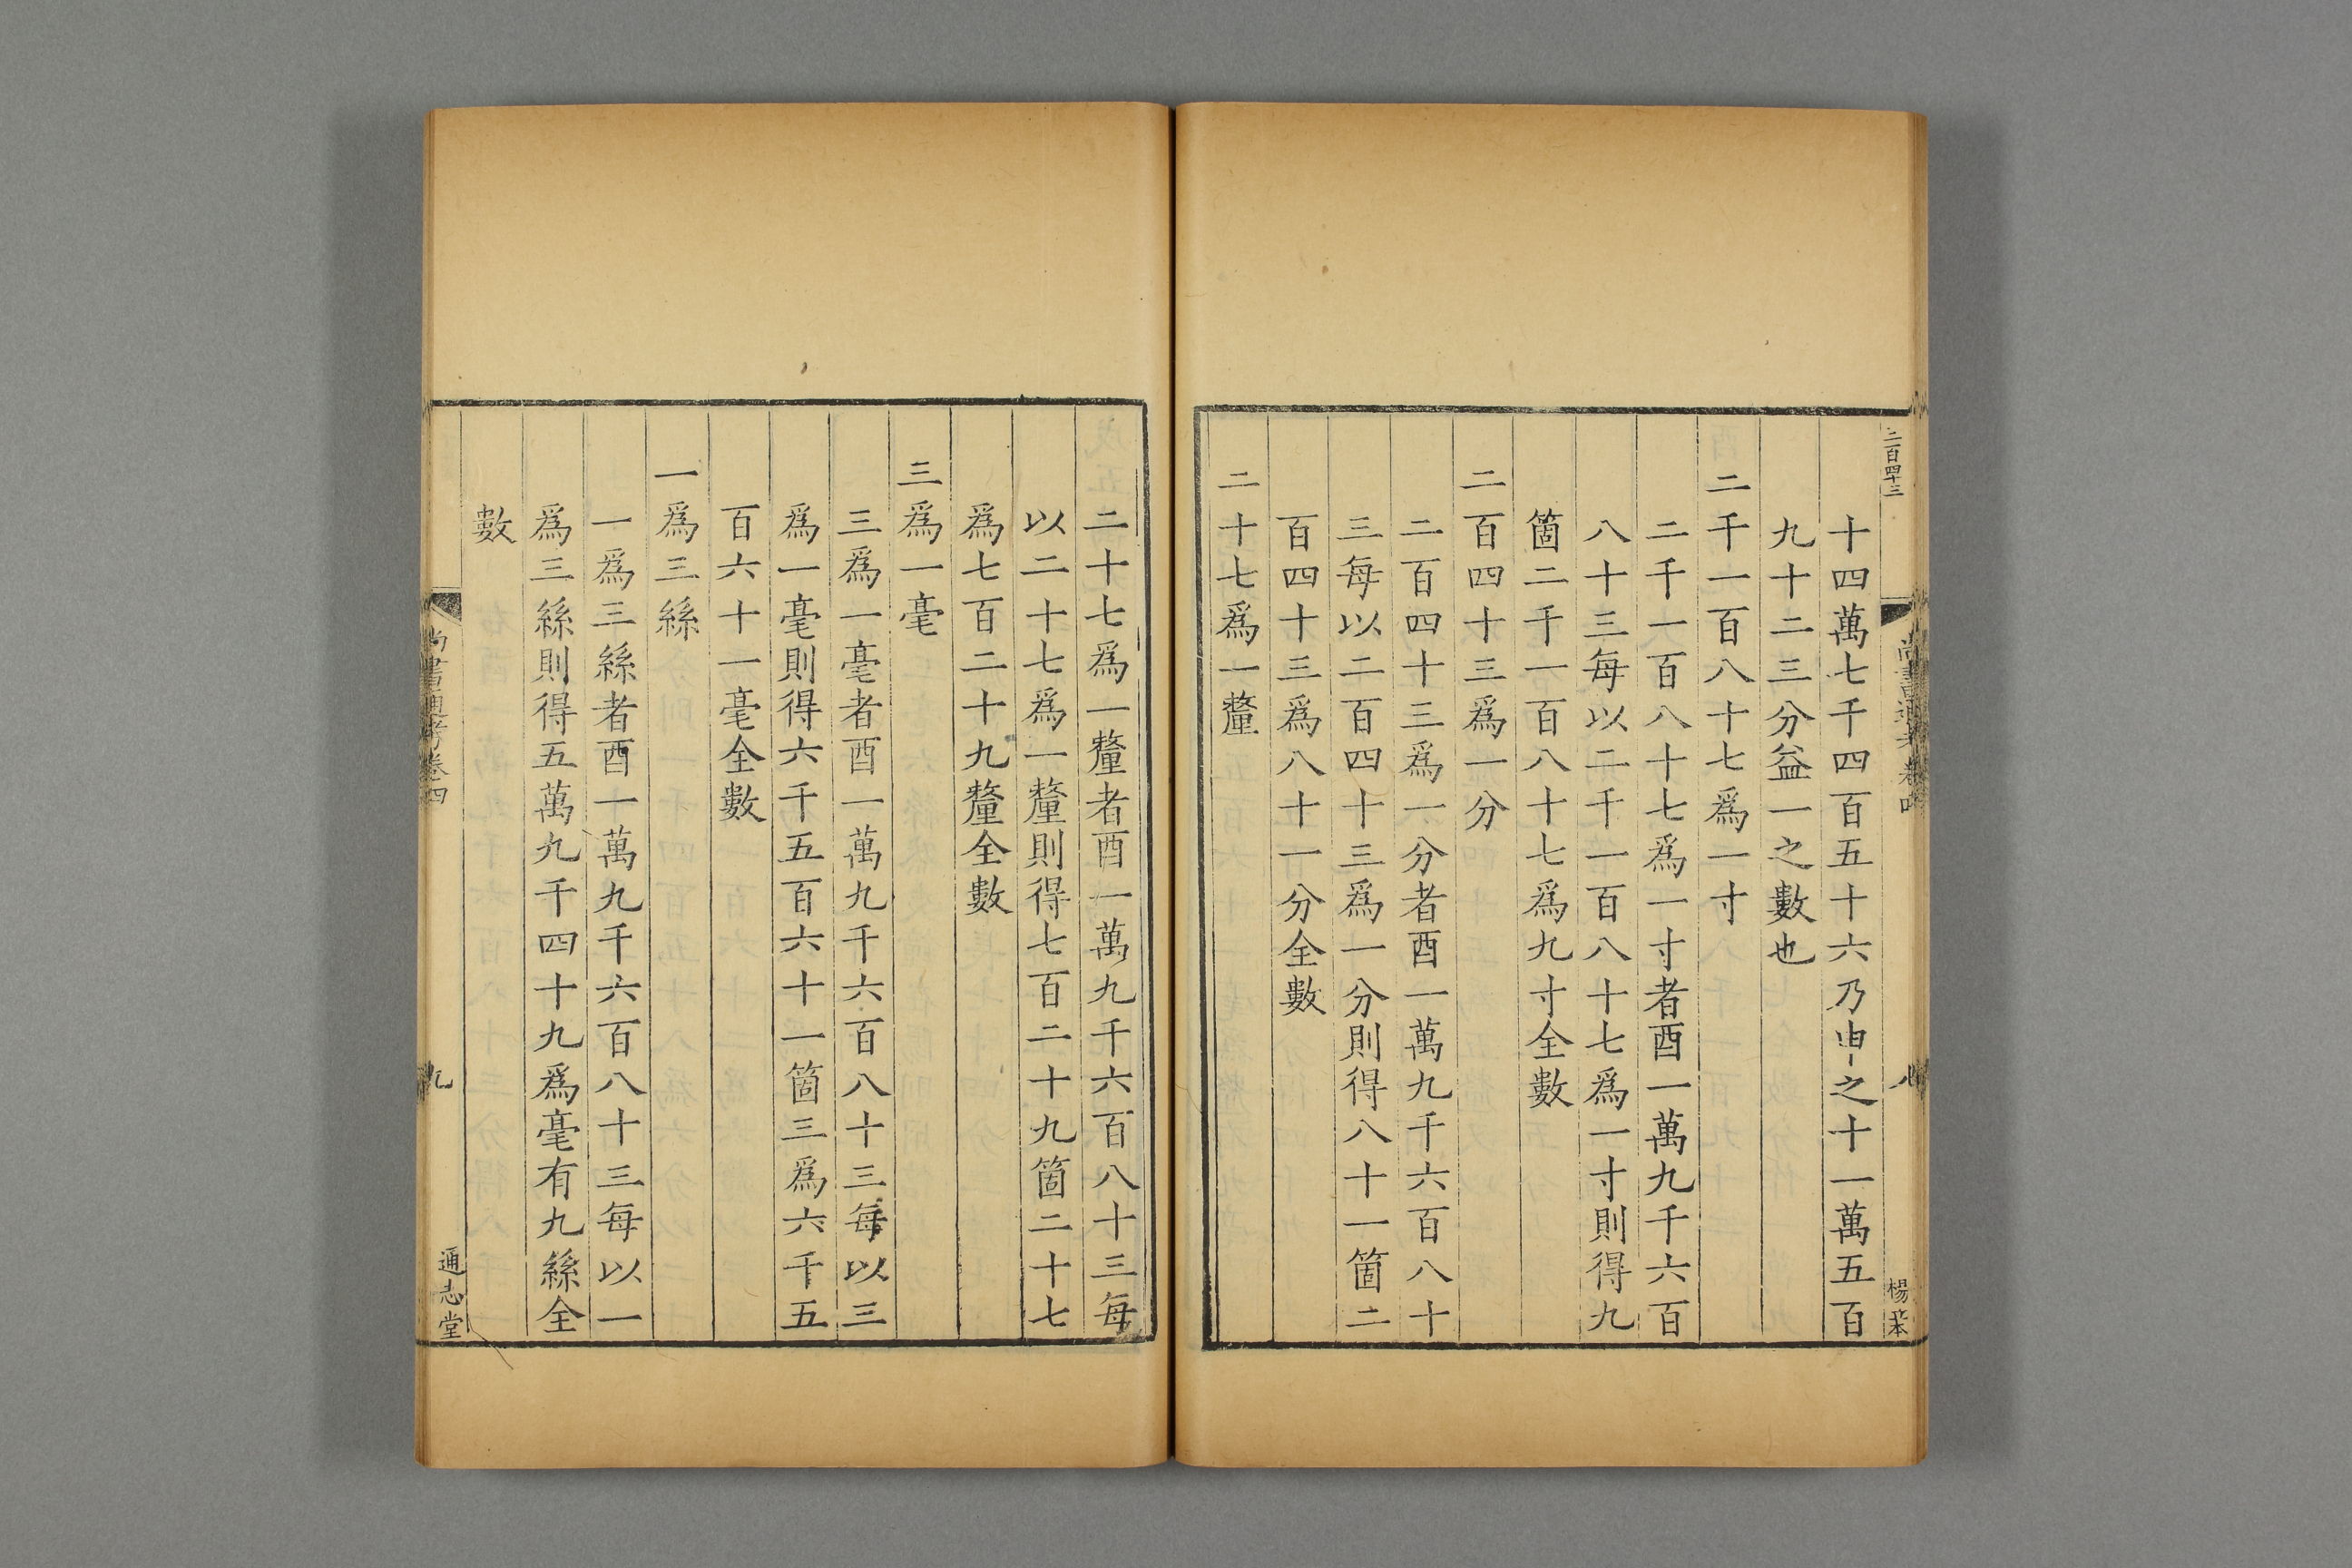 二百四十三
尚書通考卷四
八
十四萬七千四百五十六乃申之十一萬五百
九十二三分益一之數也
二千一百八十七爲一寸
二千一百八十七爲一寸者酉一萬九千六百
八十三每以二千一百八十七爲一寸則得九
箇二千一百八十七爲九寸全數
二百四十三爲一分
二百四十三爲一分者酉一萬九千六百八十
三每以二百四十三爲一分則得八十一箇二
百四十三爲八十一分全數
二十七爲一釐
二十七爲一釐者酉一萬九千六百八十三每
以二十七爲一釐則得七百二十九箇二十七
爲七百二十九釐全數
三爲一毫
三爲一毫者酉一萬九千六百八十三每以三
爲一毫則得六千五百六十一箇三爲六千五
百六十一毫全數
一爲三絲
一爲三絲者酉一萬九千六百八十三每以一
爲三絲則得五萬九千四十九爲毫有九絲全
數
尚書通考卷四
九
通志堂